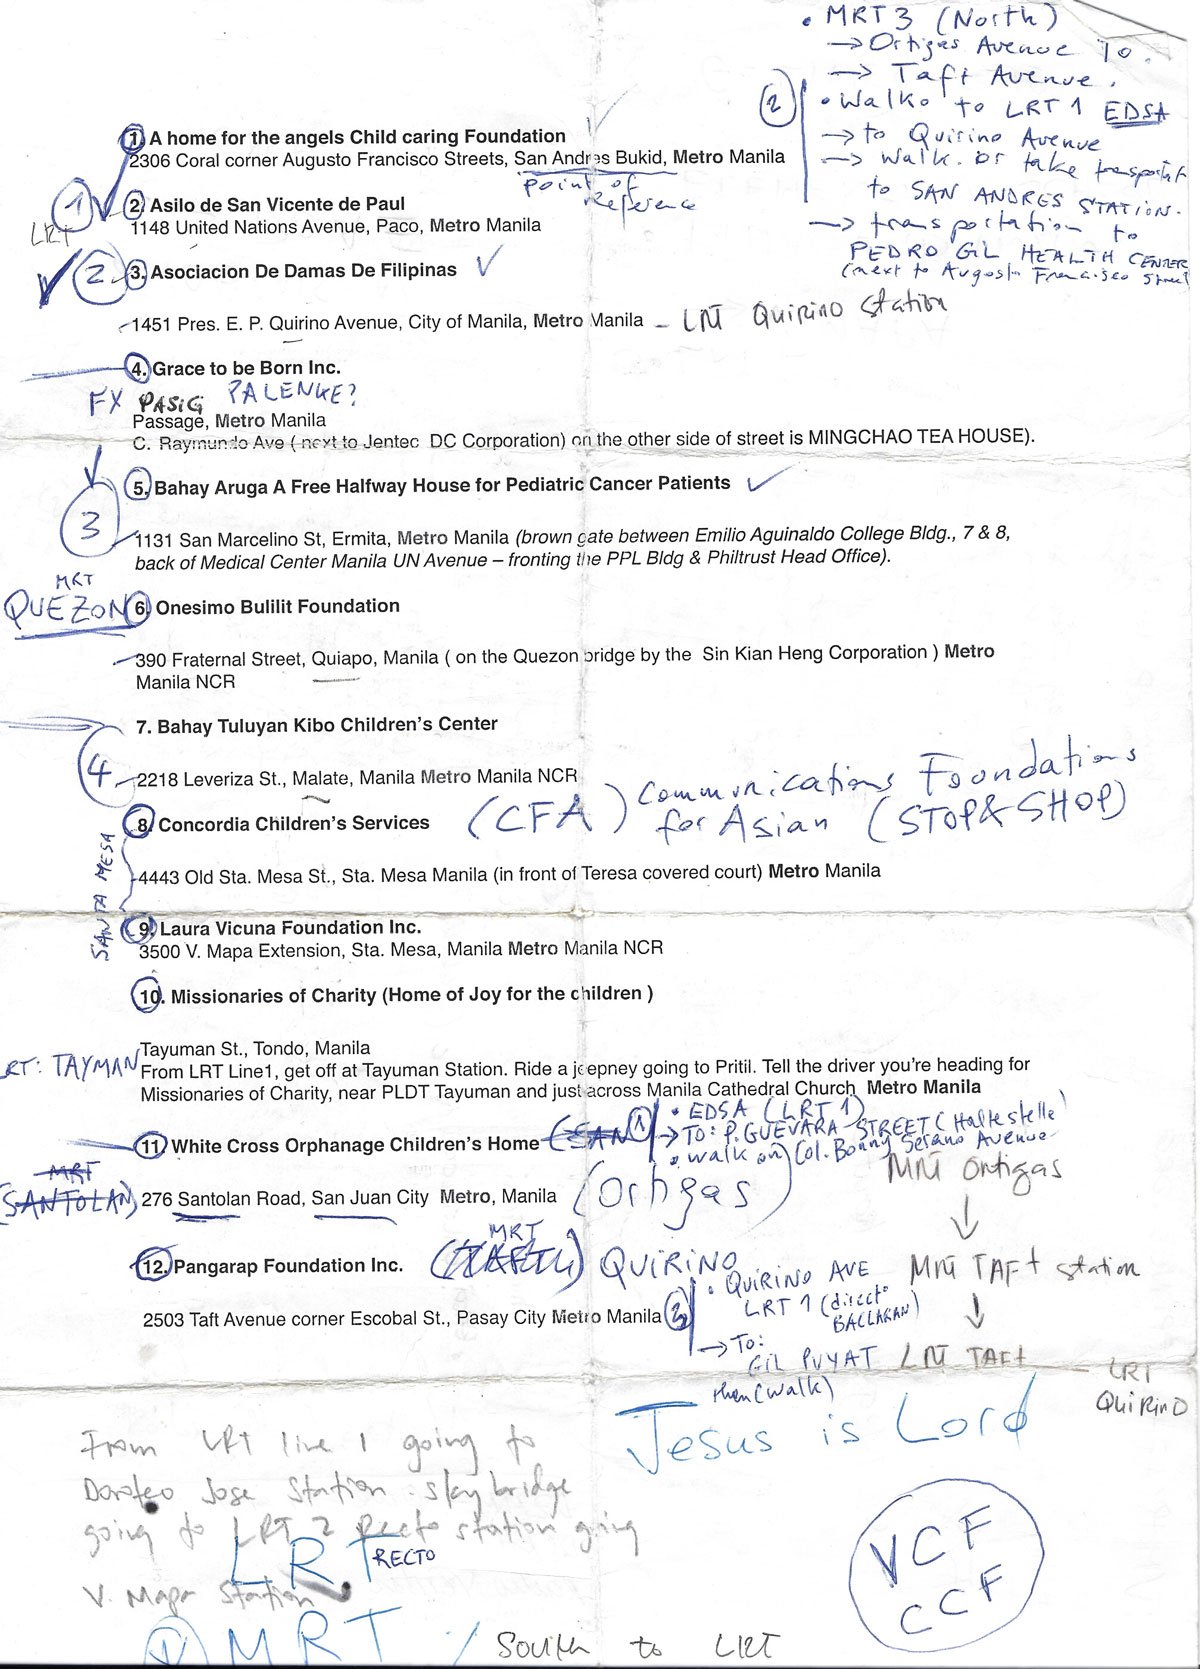 • MRT 3 (North)
→ Ortigas Avenue To
→ Taft Avenue.
② • Walk to LRT 1 EDSA
→ to Quirino Avenue
→ walk or take transportat
to SAN ANDRES STATION.
→ transportation to
PEDRO GIL HEALTH CENTER
(next to Augusto Francisco Street
1. A home for the angels Child caring Foundation
2306 Coral corner Augusto Francisco Streets, San Andres Bukid, Metro Manila
point of
Reference
1
LRT
2. Asilo de San Vicente de Paul
1148 United Nations Avenue, Paco, Metro Manila
2 3. Asociacion De Damas De Filipinas
1451 Pres. E. P. Quirino Avenue, City of Manila, Metro Manila – LRT Quirino Station
4. Grace to be Born Inc.
FX PASIG PALENKE?
Passage, Metro Manila
C. Raymundo Ave ( next to Jentec DC Corporation) on the other side of street is MINGCHAO TEA HOUSE).
5. Bahay Aruga A Free Halfway House for Pediatric Cancer Patients
3
1131 San Marcelino St, Ermita, Metro Manila (brown gate between Emilio Aguinaldo College Bldg., 7 & 8,
back of Medical Center Manila UN Avenue – fronting the PPL Bldg & Philtrust Head Office).
MRT
QUEZON 6. Onesimo Bulilit Foundation
390 Fraternal Street, Quiapo, Manila ( on the Quezon bridge by the Sin Kian Heng Corporation ) Metro
Manila NCR
7. Bahay Tuluyan Kibo Children's Center
4
2218 Leveriza St., Malate, Manila Metro Manila NCR
Communications Foundations
for Asian (STOP & SHOP)
8. Concordia Children's Services (CFA)
SANTA MESA
4443 Old Sta. Mesa St., Sta. Mesa Manila (in front of Teresa covered court) Metro Manila
9. Laura Vicuna Foundation Inc.
3500 V. Mapa Extension, Sta. Mesa, Manila Metro Manila NCR
10. Missionaries of Charity (Home of Joy for the children )
Tayuman St., Tondo, Manila
LRT: TAYMAN
From LRT Line1, get off at Tayuman Station. Ride a jeepney going to Pritil. Tell the driver you're heading for
Missionaries of Charity, near PLDT Tayuman and just across Manila Cathedral Church Metro Manila
11. White Cross Orphanage Children's Home (SAN
① • EDSA (LRT 1)
→ TO: P. GUEVARA STREET (Haltestelle)
• walk on Col. Bonny Serano Avenue
MRT
(SANTOLAN) 276 Santolan Road, San Juan City Metro, Manila (Ortigas)
MRT Ortigas
↓
MRT TAFT station
↓
LRT TAFT – LRT
QuiRinO
MRT
12. Pangarap Foundation Inc. (TAFT) QUIRINO
2503 Taft Avenue corner Escobal St., Pasay City Metro Manila
③ • QUIRINO AVE
LRT 1 (direct
BACLARAN)
→ To:
GIL PUYAT
then (walk)
Jesus is Lord
From LRT line 1 going to
Doroteo Jose Station skybridge
going to LRT 2 Recto station going
V. Mapa Station
LRT RECTO
① MRT / South to LRT
VCF
CCF